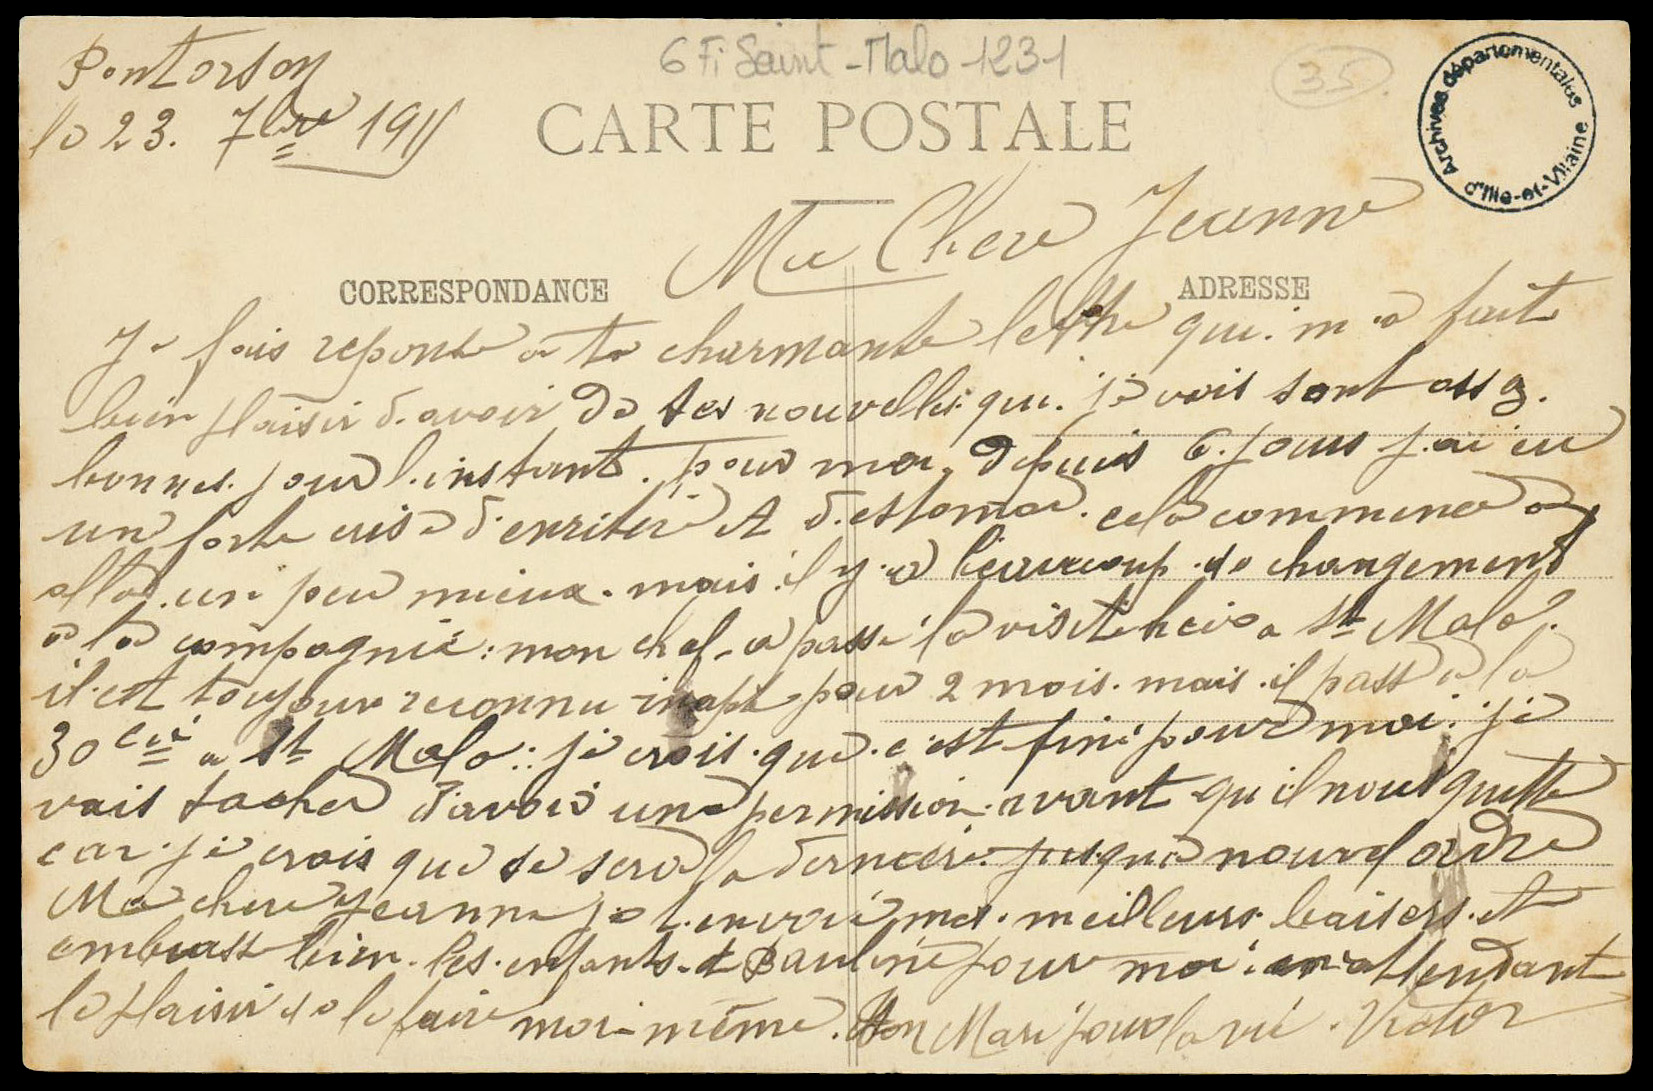 Pontorson
le 23. 7bre 1915
6 Fi Saint-Malo 1231
35
Archives départementales d'Ille-et-Vilaine
CARTE POSTALE
Ma Chere Jeanne
CORRESPONDANCE
ADRESSE
Je fais reponse a ta charmante lettre qui. m'a fait
bien plaisir d'avoir de tes nouvelles. que. je vois sont assez.
bonnes. pour l'instant. pour moi. depuis 6. jours j'ai eu
une forte crise d'enterite et d'estomac. cela commence a
aller. un peu mieux. mais. il y. a beaucoup. de changement
a la compagnie: mon chef. a passé la visite hier a St Malo.
il est toujour reconnu inapte pour 2 mois. mais. il passe a la
30 cie a St Malo: je crois. que. c'est fini pour moi. je
vais tacher d'avoir une permission. avant qu'il nous quitte
car. je crois que se sera la derniere. jusqu'a nouvel ordre
Ma chere Jeanne je t'envoie mes. meilleurs baisers. et
embrasse bien. les. enfants. et Pauline pour moi. en attendant
le plaisir de le faire moi-même. Ton Mari pour la vie. Victor